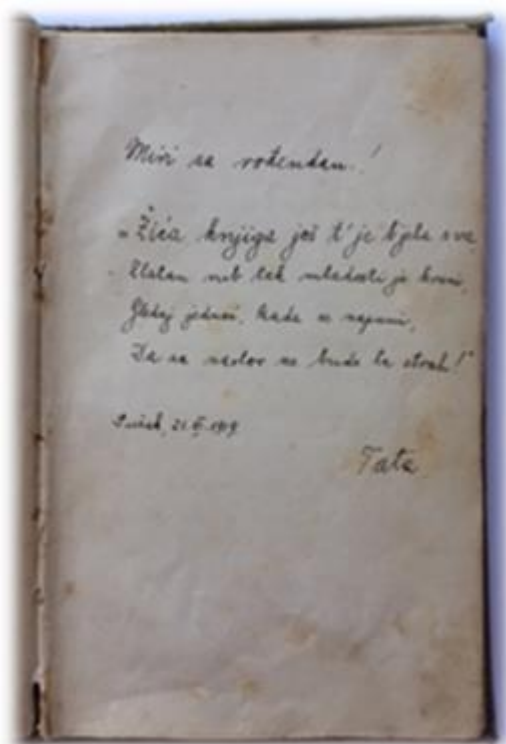 Miri za rođendan!
"Žića knjiga još t' je bjela sva,
Zlatan rub tek mladosti je krasi,
Gledaj jednoć, kada se ispuni,
Da za naslov ne bude te strah!"
Sušak, 21. 1919
Tata